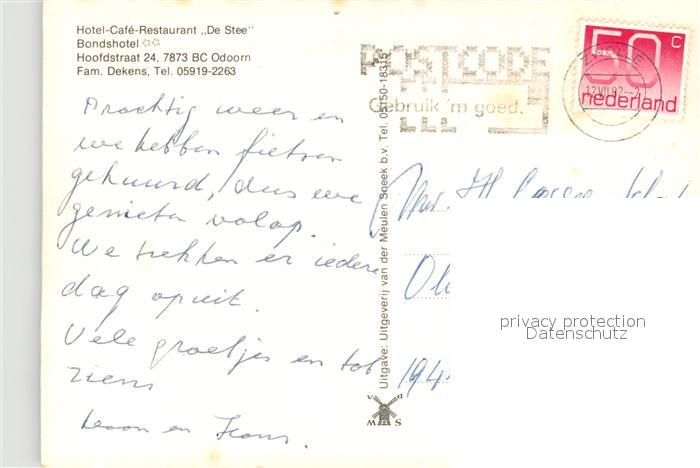 Hotel-Café-Restaurant „De Stee”
Bondshotel
Hoofdstraat 24, 7873 BC Odoorn
Fam. Dekens, Tel. 05919-2263
Prachtig weer en
we hebben fietsen
gehuurd, dus we
genieten volop.
We trekken er iedere
dag opuit.
Vele groetjes en tot
ziens
en
Uitgave: Uitgeverij van der Meulen Sneek b.v. Tel. 05150-18315
v d
M S
POSTCODE
Gebruik 'm goed.
ZWOLLE
12 VII 82
50 c
nederland
194
privacy protection
Datenschutz